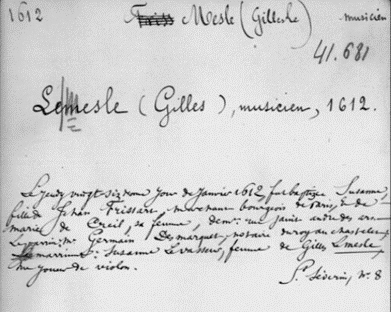 1612 Mesle (Gilles le) musicien
41.681
Lemesle (Gilles), musicien, 1612.
Le jeudy vingt sixieme jour de Janvier 1612, fut baptizé Susanne,
fille de Jehan Frissart, marchant bourgeois de Paris, & de
marie de Creil, sa femme, dem.t rue saint andre des ars.
Le parrin: Mr Germain Desmarquet, notaire du roy au chastelet,
marrine: Susanne Levasseur, femme de Gilles Lemesle,
joueur de violon.
St Séverin, No 8